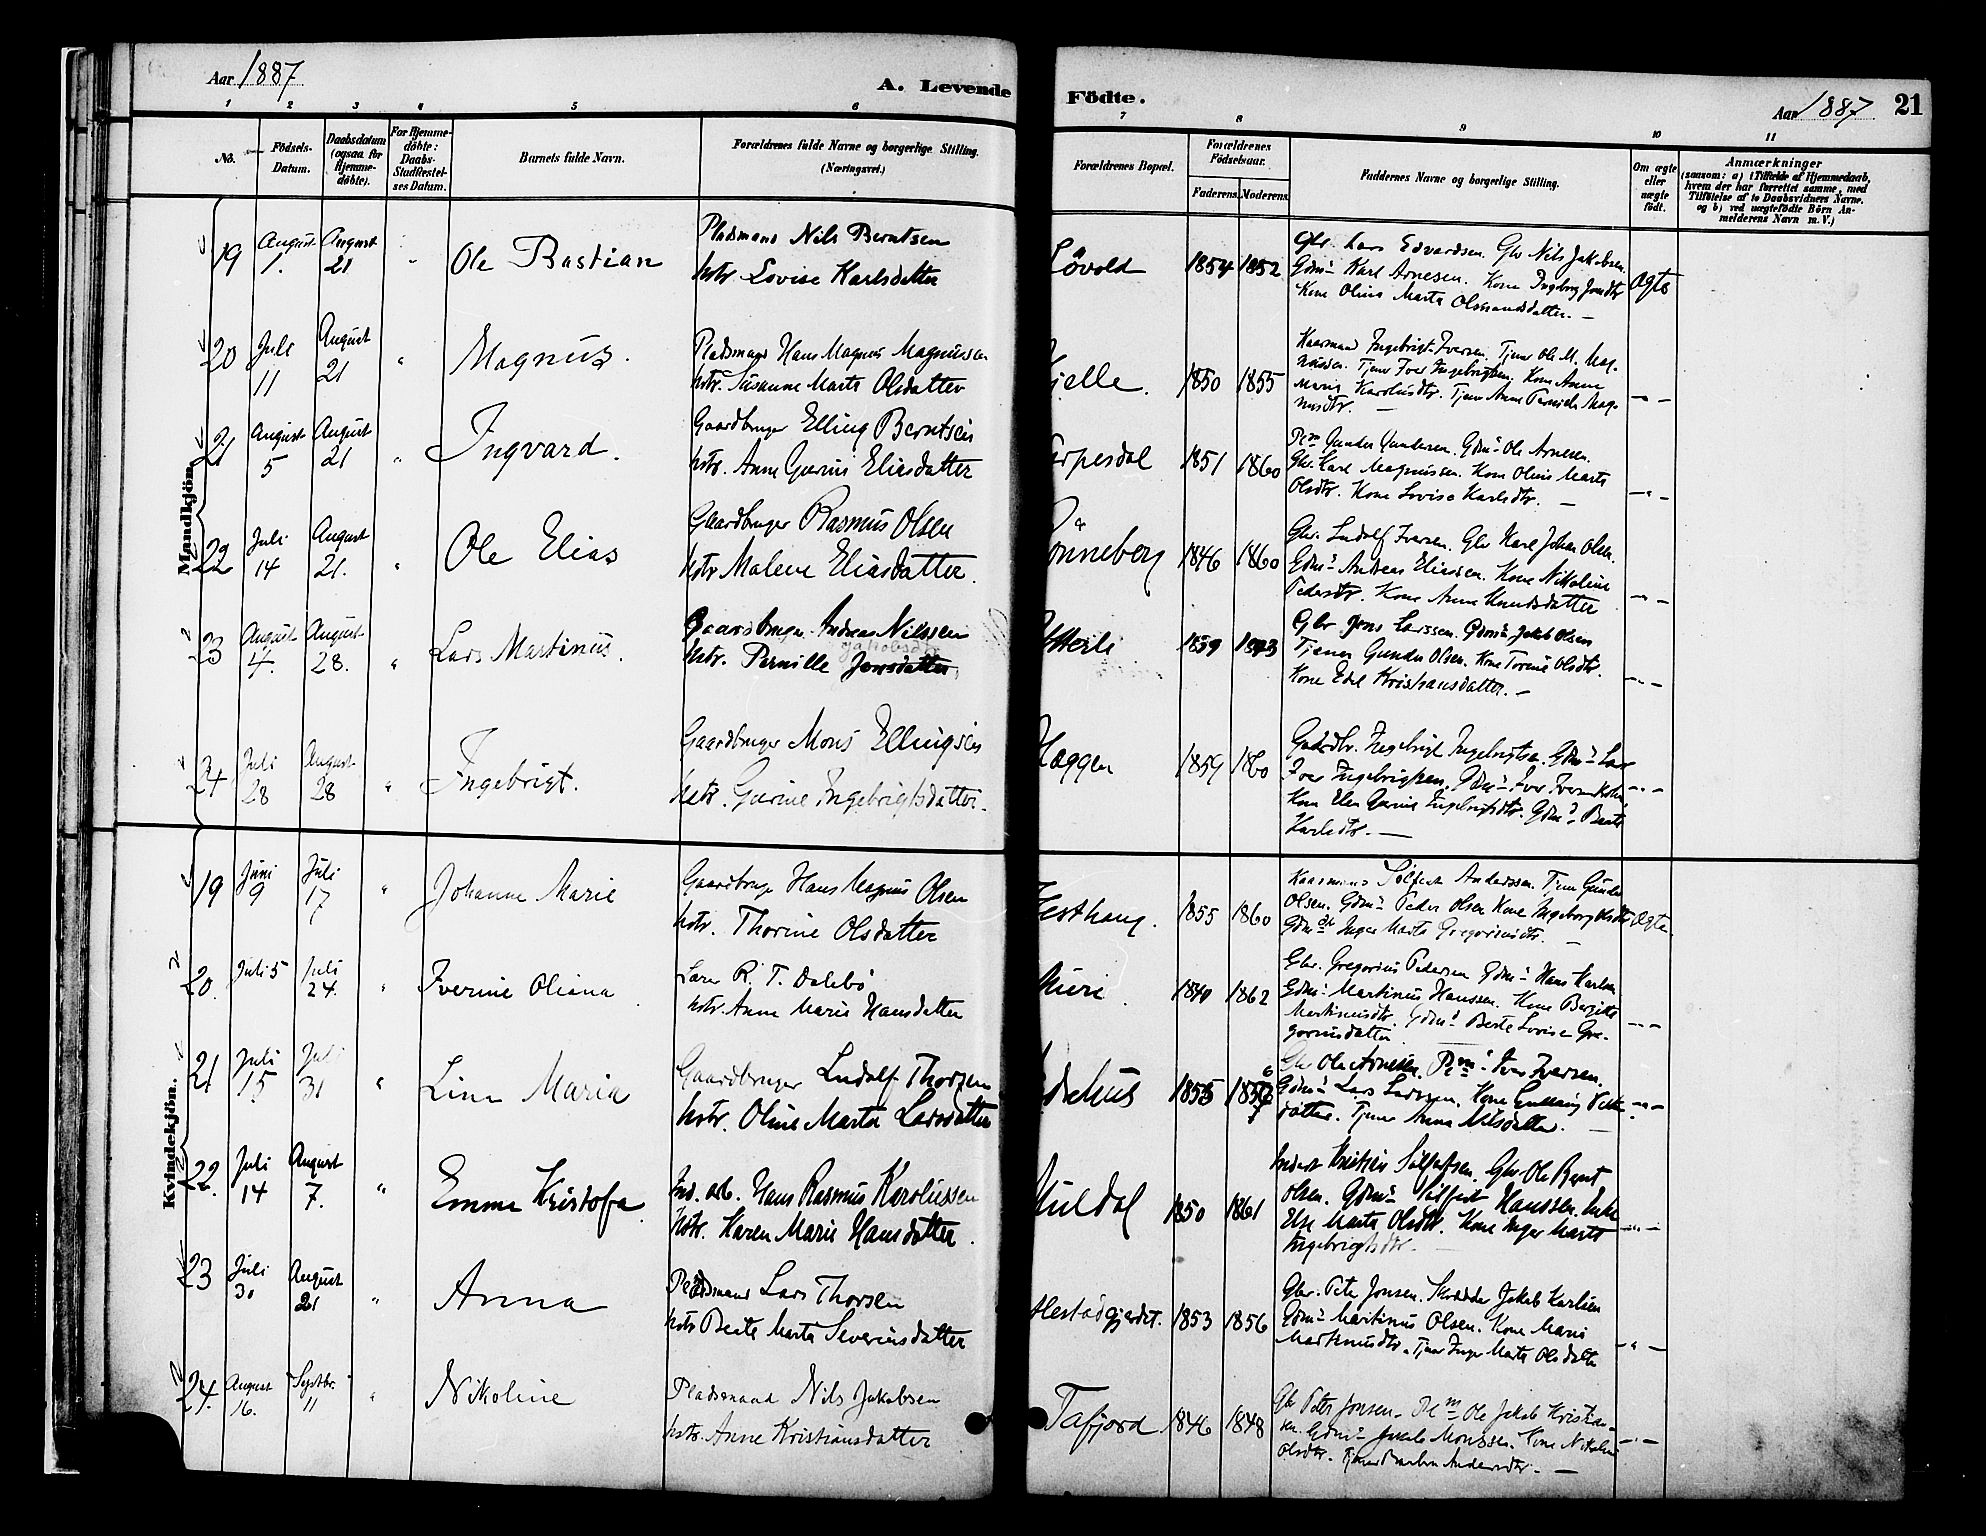 Aar 1887
A. Levende
Födte.
Aar 1887 21
1 2 3 4 5 6 7 8 9 10 11
No.
Födsels-
Datum.
Daabsdatum
(ogsaa for
Hjemme-
döbte).
For Hjemme-
döbte:
Daabs-
Stadfæstel-
ses Datum.
Barnets fulde Navn.
Forældrenes fulde Navne og borgerlige Stilling.
(Næringsvei.)
Forældrenes Bopæl.
Forældrenes
Födselsaar.
Faderens. Moderens.
Faddernes Navne og borgerlige Stilling.
Om ægte
eller
uægte
født.
Anmærkninger
(saasom: a) i Tilfælde af Hjemmedaab,
hvem der har forrettet samme, med
Tilföielse af to Daabsvidners Navne.
og b) ved uægtefödte Börn An-
melderens Navn m. V.)
Mandkjön.
19 August 1. August 21 " Ole Bastian
Pladsmand Nils Berntsen
hstr. Lovise Karlsdatter
Løvold 1854 1852
Gbr. Lars Edvardsen. Gbr Nils Jakobsen.
Gdms Karl Arnesen. Kone Ingeborg Jonsdtr
Kone Oline Marta Olsmandsdatter. —
Ægte
20 Juli 11 August 21 " Magnus.
Pladsmand Hans Magnus Magnussen
hstr. Susanne Marta Olsdatter
Kjelle. 1850 1855
Kaarmand Ingebrigt Iversen. Tjener Ole M. Mag-
nussen. Tjener Iver Ingebrigtsen. Kone Anne
Maria Karolusdtr. Tjener Anne Pernille Mag-
nusdtr. —
— " —
21 August 5 August 21 " Ingvard.
Gaardbruger Elling Berntsen
hstr. Anne Gurine Eliasdatter
1851 1860
Plm Gunder Gundersen. Gdms Ole Arnesen.
Gbr. Karl Magnussen. Kone Oline Marta
Olsdtr. Kone Lovise Karlsdtr. —
— " —
22 Juli 14 August 21. " Ole Elias
Gaardbruger Rasmus Olsen
hstr Malene Eliasdatter.
Rønneberg 1846 1860
Gbr. Ludolf Iversen. Gbr Karl Johan Olsen.
Gdms Andreas Eliassen. Kone Nikoline
Pedersdtr. Kone Anne Knudsdatter
— " —
23 August 4. August 28. " Lars Martinus.
Gaardbruger Andreas Nilssen
Jakobsdtr
hstr. Pernille Jonsdatter.
Ytterli 1859
Gbr Jens Larssen. Gdms Jakob Olsen
Tjener Gunder Olsen. Kone Torine Olsdtr.
Kone Edel Kristiansdatter. —
— " —
24 Juli 28 August 28 " Ingebrigt.
Gaardbruger Mons Ellingsen
hstr. Gurine Ingebrigtsdatter.
Heggen 1859 1860
Gaardbr. Ingebrigt Ingebrigtsen. Gdms Lars
Iver Ingebrigtsen. Gdms Iver
Kone Elen Gurine Ingebrigtsdtr. Gdms Berte
Karlsdtr. —
— " —
Kvindekjön.
19 Juni 9 Juli 17 " Johanne Marie
Gaardbruger Hans Magnus Olsen
hstr. Thorine Olsdatter
Hesthaug. 1855 1860
Kaarmand Sølfest Anderssen. Tjener Gunder
Olsen. Gdms Peder Olsen Kone Ingeborg Olsdtr
Gdmdtr Inger Marta Gregoriusdtr. —
Ægte.
20. Juli 5 Juli 24. " Iverine Oliana
Lærer R. T. Dalebø
hstr. Anne Marie Hansdatter
Muri. 1840 1862
Gbr. Gregorius Pedersen Gdms Hans Karlsen
Gdms Martinus Hanssen. Kone Bergitte
Martinusdtr. Gdms Berte Lovise Gre-
goriusdatter
— " —
21 Juli 15 Juli 31 " Lina Maria
Gaardbruger Ludolf Thorsen
hstr. Oline Marta Larsdatter
1855
Gbr Ole Arnesen. Plms Iver Iversen.
Gdms Lars Larssen. Kone
datter. Tjener Anna Nilsdatter. —
— " —
22. Juli 14 August 7. " Emma Kristofa
Ind. arb. Hans Rasmus Karolussen
hstr. Karen Marie Hansdatter.
Muldal 1850 1861
Inderst Kristen Sølfestsen. Gbr Ole Bernt
Olsen. Gdms Sølfest Hanssen. Enke
Else Marta Olsdtr. Kone Inger Marta
Ingebrigtsdtr. —
— " —
23 Juli 30 August 21 " Anna
Pladsmand Lars Thorsen
hstr Berte Marta Severinsdatter
Hestadgjerdet. 1853 1856
Gbr. Peter Jonsen. Skrædder Jakob Karlsen
Gdms Martinus Olsen. Kone Marie
Martinusdtr. Tjener Inger Marta Olsdatter
— " —
24. August 16. Septbr. 11 " Nikoline
Pladsmand Nils Jakobsen
hstr. Anne Kristiansdatter
Tafjord. 1846 1848
Gbr Peter Jonsen. Plm Ole Jakob Kristian-
sen. Gdms Jakob Monssen. Kone Nikoline
Olsdtr. Tjener Andersdtr. —
— " —